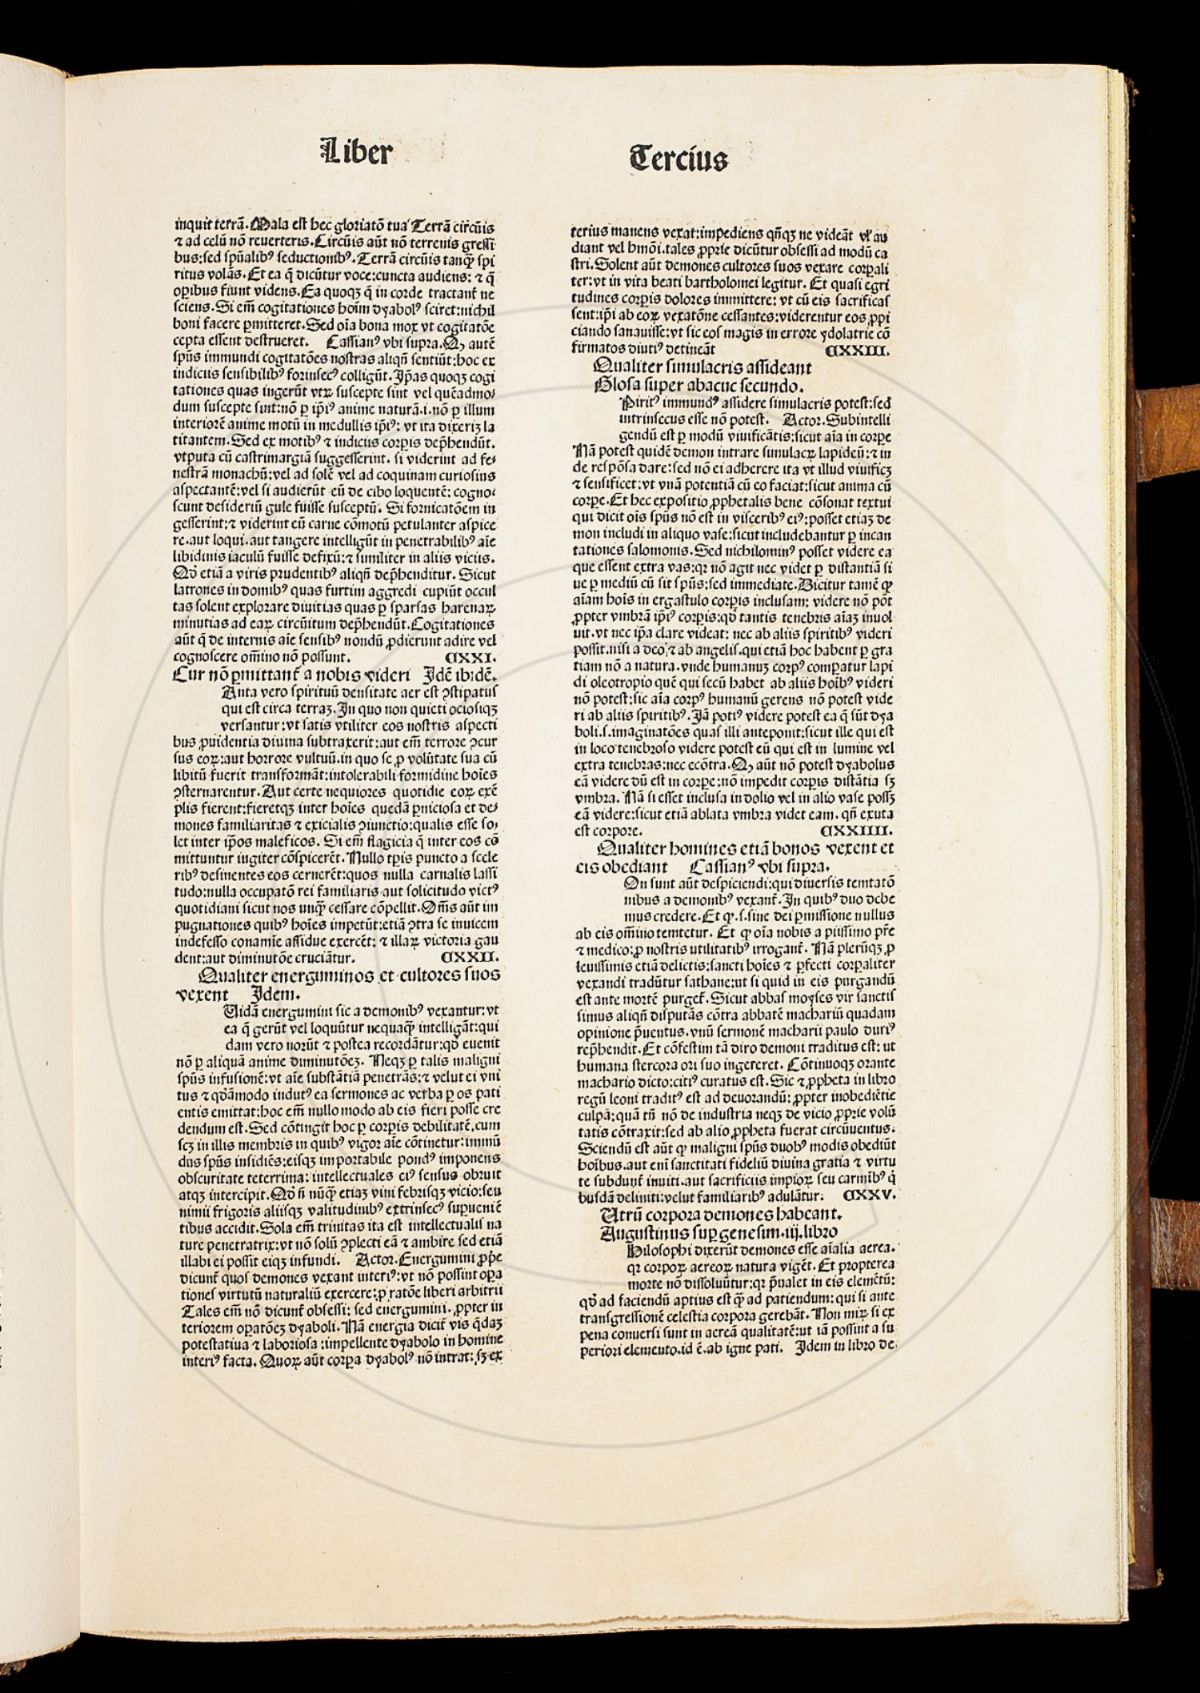 Liber Tercius
inquit terrã. Mala est hec gloriatõ tua Terrã circũis
⁊ ad celũ nõ reuerteris. Circũis aũt nõ terrenis gressi
bus: sed spũalibꝰ seductionibꝰ. Terrã circũis tanqꝫ spi
ritus volãs. Et ea q̃ dicũtur voce: cuncta audiens: ⁊ q̃
oꝑibus fiunt videns. Ea quoqꝫ q̃ in corde tractant̃ ne
sciens. Si em̃ cogitationes hoĩm dyabolꝰ sciret: nichil
boni facere ꝑmitteret. Sed oĩa bona mox vt cogitatõe
cepta essent destrueret. Cassianꝰ vbi supra. Qꝫ autẽ
spũs immundi cogitatões nostras aliqñ sentiũt: hoc ex
indiciis sensibilibꝰ forinsecꝰ colligũt. Ip̃as quoqꝫ cogi
tationes quas ingerũt vtꝝ suscepte sint vel quẽadmo-
dum suscepte sint: nõ ꝑ ip̃iꝰ anime naturã .i. nõ ꝑ illum
interiorẽ anime motũ in medullis ip̃iꝰ: vt ita dixerĩ la
titantem. Sed ex motibꝰ ⁊ indiciis corꝑis dep̃hendũt.
vtputa cũ castrimargiã suggesserint. si viderint ad fe-
nestrã monachũ: vel ad solẽ vel ad coquinam curiosius
aspectantẽ: vel si audierũt eũ de cibo loquentẽ: cogno-
scunt desideriũ gule fuisse susceptũ. Si fornicatõem in
gesserint: ⁊ viderint eũ carne cõmotũ petulanter aspice
re. aut loqui. aut tangere intelligũt in penetrabilibꝰ aĩe
libidinis iaculũ fuisse defixũ: ⁊ similiter in aliis viciis.
Qđ etiã a viris prudentibꝰ aliqñ dep̃henditur. Sicut
latrones in domibꝰ quas furtim aggredi cupiũt occul
tas solent explorare diuitias quas ꝑ sparsas harenaꝝ
minutias ad eaꝝ circũitum dep̃hendũt. Cogitationes
aũt q̃ de internis aĩe sensibꝰ nondũ ꝓdierunt adire vel
cognoscere om̃ino nõ possunt. CXXI.
Cur nõ ꝑmittant̃ a nobis videri Idẽ ibidẽ.
Anta vero spirituũ densitate aer est ꝯstipatus
qui est circa terraꝫ. In quo non quieti ociosiqꝫ
versantur: vt satis vtiliter eos nostris aspecti
bus ꝓuidentia diuina subtraxerit: aut em̃ terrore ꝯcur
sus eoꝝ: aut horrore vultuũ. in quo se ꝓ volũtate sua cũ
libitũ fuerit transformãt: intolerabili formidine hoĩes
ꝯsternarentur. Aut certe nequiores quotidie eoꝝ exẽ
plis fierent: fieretqꝫ inter hoĩes quedã ꝑniciosa et de-
mones familiaritas ⁊ exicialis ꝯiunctio: qualis esse so-
let inter ip̃os maleficos. Si em̃ flagicia q̃ inter eos cõ
mittuntur iugiter cõspicerẽt. Nullo tp̃is puncto a scele
ribꝰ desinentes eos cernerẽt: quos nulla carnalis lassi
tudo: nulla occupatõ rei familiaris aut solicitudo victꝰ
quotidiani sicut nos unqꝫ cessare cõpellit. Om̃s aũt im
pugnationes quibꝰ hoĩes impetũt: etiã ꝯtra se inuicem
indefesso conamĩe assidue exercẽt: ⁊ illaꝝ victoria gau
dent: aut diminutõe cruciãtur. CXXII.
Qualiter energuminos et cultores suos
vexent Idem.
Uidã energumini sic a demonibꝰ vexantur: vt
ea q̃ gerũt vel loquũtur nequaqꝫ intelligãt: qui
dam vero norũt ⁊ postea recordãtur: qđ euenit
nõ ꝑ aliquã anime diminutõeꝫ. Neqꝫ ꝑ talis maligni
spũs infusionẽ: vt aĩe substãtiã penetrãs: ⁊ velut ei vni
tus ⁊ qđãmodo indutꝰ ea sermones ac verba ꝑ os pati
entis emittat: hoc em̃ nullo modo ab eis fieri posse cre
dendum est. Sed cõtingit hoc ꝑ corꝑis debilitatẽ. cum
scꝫ in illis membris in quibꝰ vigor aĩe cõtinetur: immũ
dus spũs insidiẽs: eisqꝫ importabile pondꝰ imponens
obscuritate teterrima: intellectuales eiꝰ sensus obruit
atqꝫ intercipit. Qđ ñ nũqꝫ etiaꝫ vini febrisqꝫ vicio: seu
nimii frigoris aliisqꝫ valitudinibꝰ extrinsecꝰ superueniẽ
tibus accidit. Sola em̃ trinitas ita est intellectualis na
ture penetratrix: vt nõ solũ ꝯplecti eã ⁊ ambire sed etiã
illabi ei possit eiqꝫ infundi. Actor. Energumini ꝓp̃e
dicunt̃ quos demones vexant interiꝰ: vt nõ possint oꝑa
tiones virtutũ naturaliũ exercere: ꝓ ratõe liberi arbitrii
Tales em̃ nõ dicunt̃ obsessi: sed energumini. ꝓpter in
teriorem oꝑatõeꝫ dyaboli. Nã energia dicit̃ vis q̃daꝫ
potestatiua ⁊ laboriosa: impellente dyabolo in homine
interiꝰ facta. Quoꝝ aũt corꝑa dyabolꝰ nõ intrat: sꝫ ex
terius manens vexat: impediens qñqꝫ ne videãt vĺ au
diant vel hmõi. tales ꝓprie dicũtur obsessi ad modũ ca
stri. Solent aũt demones cultores suos vexare corꝑali
ter: vt in vita beati bartholomei legitur. Et quasi egri
tudines corꝑis dolores immittere: vt cũ eis sacrificas
sent: ip̃i ab eoꝝ vexatõne cessantes: viderentur eos ꝓpi
ciando sanauisse: vt sic eos magis in errore ydolatrie cõ
firmatos diutiꝰ detineãt CXXIII.
Qualiter simulacris assideant
Glosa super abacuc secundo.
Piritꝰ immundꝰ assidere simulacris potest: sed
intrinsecus esse nõ potest. Actor. Subintelli
gendũ est ꝑ modũ viuificãtis: sicut aĩa in corꝑe
Nã potest quidẽ demon intrare simulacꝝ lapideũ: ⁊ in
de respõsa dare: sed nõ ei adherere ita vt illud viuificꝫ
⁊ sensificet: vt vnã potentiã cũ eo faciat: sicut anima cũ
corꝑe. Et hec expositio ꝓphetalis bene cõsonat textui
qui dicit oĩs spũs nõ est in visceribꝰ eiꝰ: posset etiaꝫ de
mon includi in aliquo vase: sicut includebantur ꝑ incan
tationes salomonis. Sed nichilominꝰ posset videre ea
que essent extra vas: qꝛ nõ agit nec videt ꝑ distantiã si
ue ꝑ mediũ cũ sit spũs: sed immediate. Dicitur tamẽ qꝫ
aĩam hoĩs in ergastulo corꝑis inclusam: videre nõ põt
ꝓpter vmbrã ip̃iꝰ corꝑis: qđ tantis tenebris aĩaꝫ inuol
uit. vt nec ip̃a clare videat: nec ab aliis spiritibꝰ videri
possit. nisi a deo: ⁊ ab angelis. qui etiã hoc habent ꝑ gra
tiam nõ a natura. vnde humanuꝫ corpꝰ comꝑatur lapi
di oleotropio quẽ qui secũ habet ab aliis hoĩbꝰ videri
nõ potest: sic aĩa corpꝰ humanũ gerens nõ potest vide
ri ab aliis spiritibꝰ. Iã potiꝰ videre potest ea q̃ sũt dya
boli. s. imaginatões quas illi anteponit: sicut ille qui est
in loco tenebroso videre potest eũ qui est in lumine vel
extra tenebras: nec ecõtra. Qꝫ aũt nõ potest dyabolus
eã videre dũ est in corꝑe: nõ impedit corꝑis distãtia sꝫ
vmbra. Nã si esset inclusa in dolio vel in alio vase possꝫ
eã videre: sicut etiã ablata vmbra videt eam. qñ exuta
est corpore. CXXIIII.
Qualiter homines etiã bonos vexent et
eis obediant Cassianꝰ vbi supra.
On sunt aũt despiciendi: qui diuersis temtatõ
nibus a demonibꝰ vexant̃. In quibꝰ duo debe
mus credere. Et qꝫ. s. sine dei ꝑmissione nullus
ab eis om̃ino temtetur. Et qꝫ oĩa nobis a piissimo pr̃e
⁊ medico: ꝓ nostris utilitatibꝰ irrogant̃. Nã plerũqꝫ ꝓ
leuissimis etiã delictis: sancti hoĩes ⁊ ꝑfecti corꝑaliter
vexandi tradũtur sathane: ut si quid in eis purgandũ
est ante mortẽ purget̃. Sicut abbas moyses vir sanctis
simus aliqñ disputãs cõtra abbatẽ machariũ quadam
opinione p̃uentus. vnũ sermonẽ macharii paulo duriꝰ
rep̃hendit. Et cõfestim tã diro demoni traditus est: ut
humana stercora ori suo ingereret. Cõtinuoqꝫ orante
machario dicto: citiꝰ curatus est. Sic ⁊ ꝓpheta in libro
regũ leoni traditꝰ est ad deuorandũ: ꝓpter inobediẽtie
culpã: quã tñ nõ de industria neqꝫ de vicio ꝓprie volũ
tatis cõtraxit: sed ab alio ꝓpheta fuerat circũuentus.
Sciendũ est aũt qꝫ maligni spũs duobꝰ modis obediũt
hoĩbus. aut em̃ sanctitati fideliũ diuina gratia ⁊ virtu
te subdunt̃ inuiti. aut sacrificiis impioꝝ seu carmĩbꝰ q̃
busdã deliniti: velut familiaribꝰ adulãtur. CXXV.
Utrũ corpora demones habeant.
Augustinus suꝑ genesim .iij. libro
Hilosophi dixerũt demones esse aĩalia aerea.
qꝛ corpoꝝ aereoꝝ natura vigẽt. Et propterea
morte nõ dissoluũtur: qꝛ p̃ualet in eis elemẽtũ:
qđ ad faciendũ aptius est qꝫ ad patiendum: qui si ante
transgressionẽ celestia corpora gerebãt. Non miꝝ si ex
pena conuersi sunt in aereã qualitatẽ: ut iã possint a su
periori elemento. id ẽ. ab igne pati. Idem in libro de